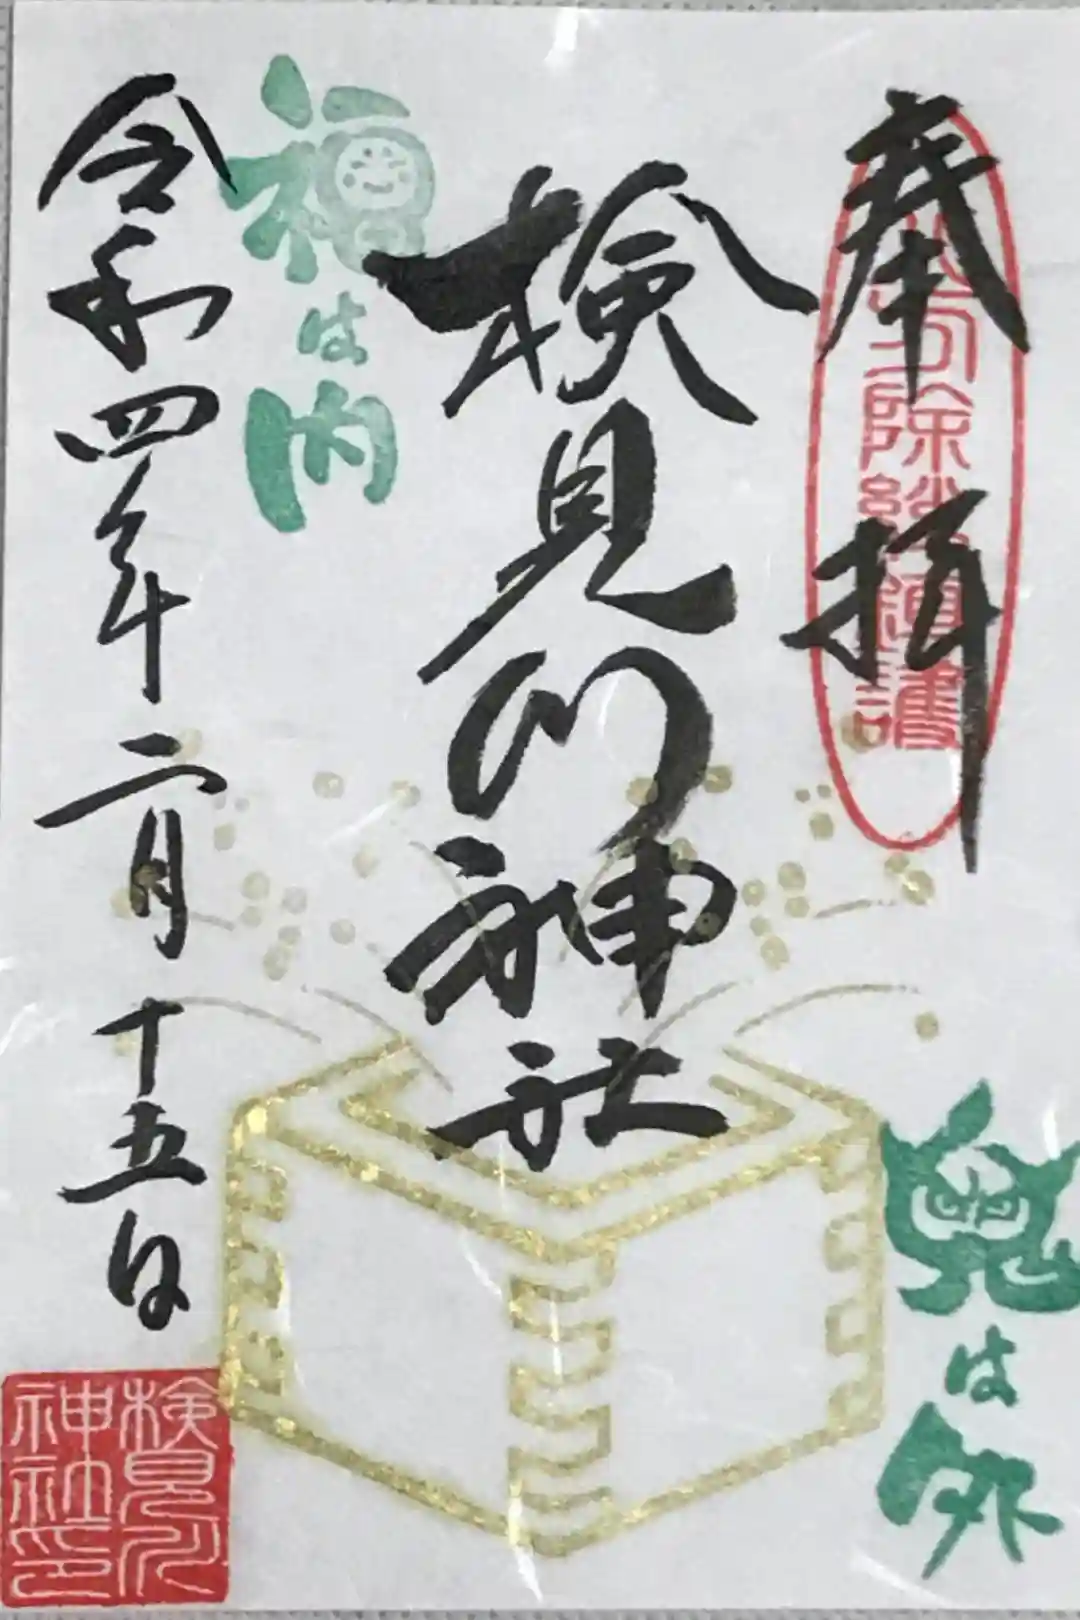 奉拝
八方除総鎮護
検見川神社
鬼は外
福は内
令和四年二月十五日
検見川
神社印